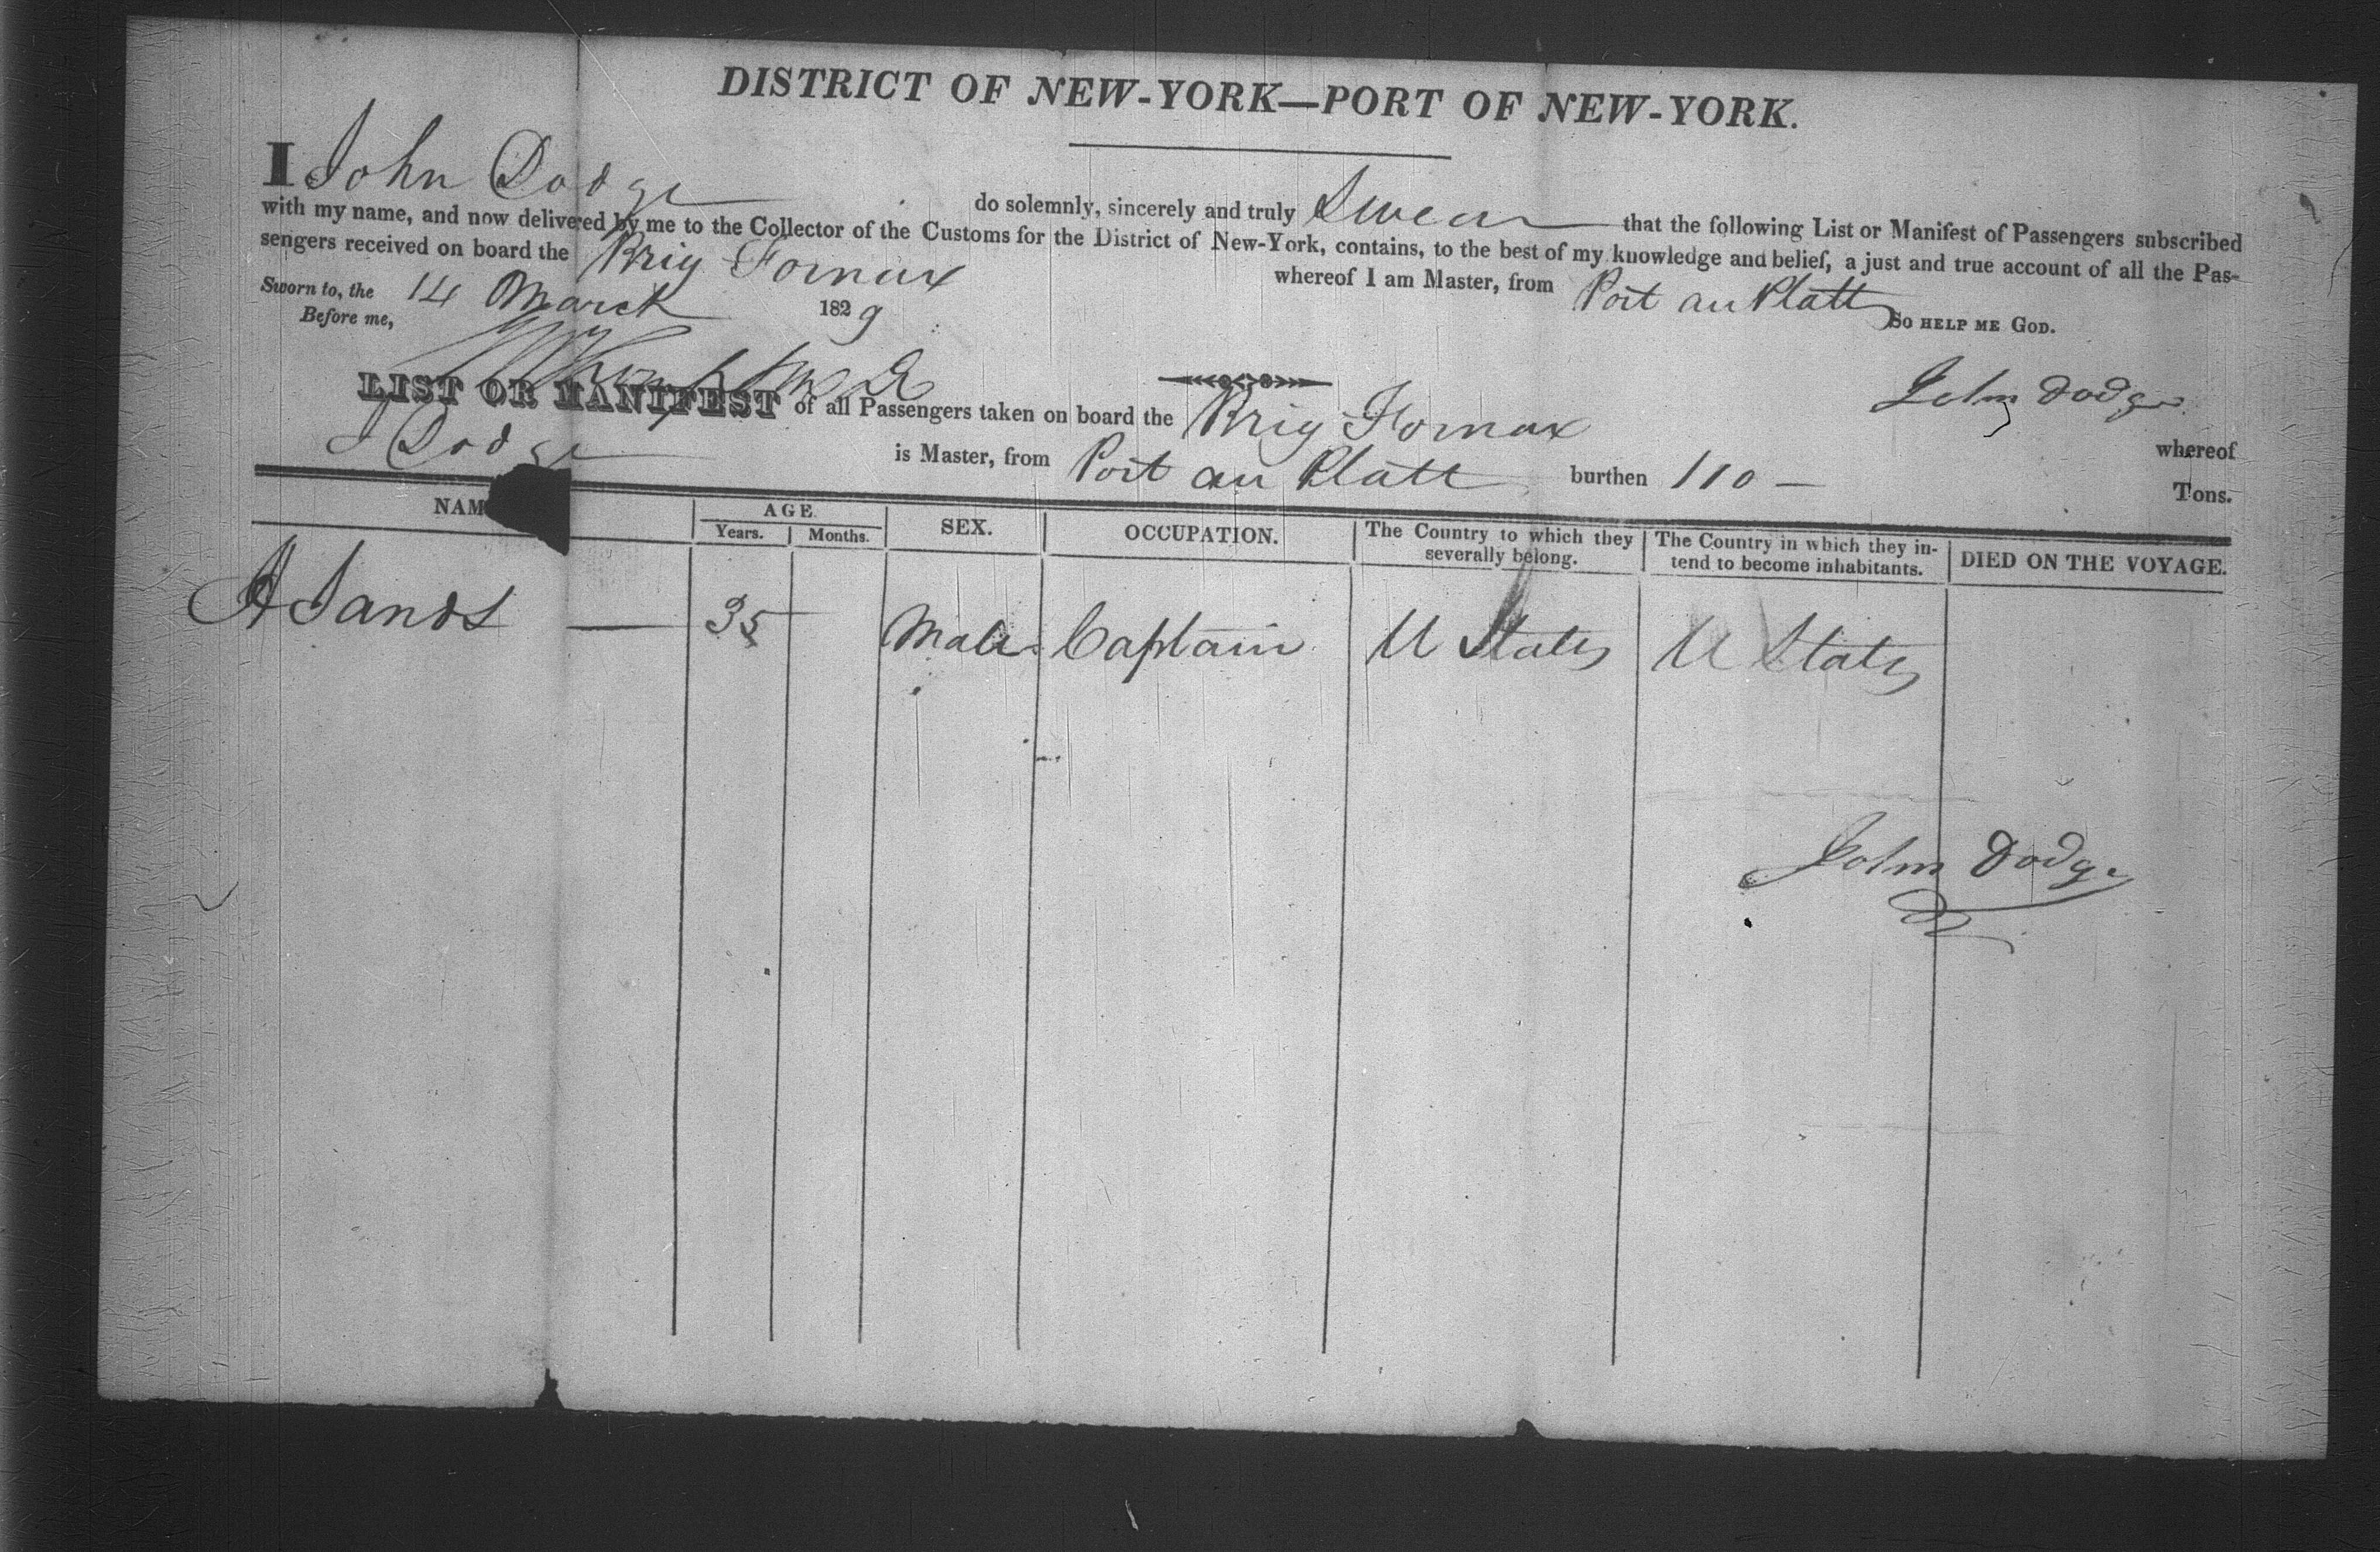 DISTRICT OF NEW-YORK—PORT OF NEW-YORK.
I John Dodge do solemnly, sincerely and truly Swear that the following List or Manifest of Passengers subscribed
with my name, and now delivered by me to the Collector of the Customs for the District of New-York, contains, to the best of my knowledge and belief, a just and true account of all the Pas-
sengers received on board the Brig Fornax whereof I am Master, from Port au Platt
Sworn to, the 14 March 1829 SO HELP ME GOD.
Before me,
John Dodge
LIST OR MANIFEST of all Passengers taken on board the Brig Fornax whereof
J Dodge is Master, from Port au Platt burthen 110 — Tons.
NAM AGE. SEX. OCCUPATION. The Country to which they severally belong. The Country in which they in-tend to become inhabitants. DIED ON THE VOYAGE.
Years. Months.
A Sands — 35 Male Captain U States U States
John Dodge